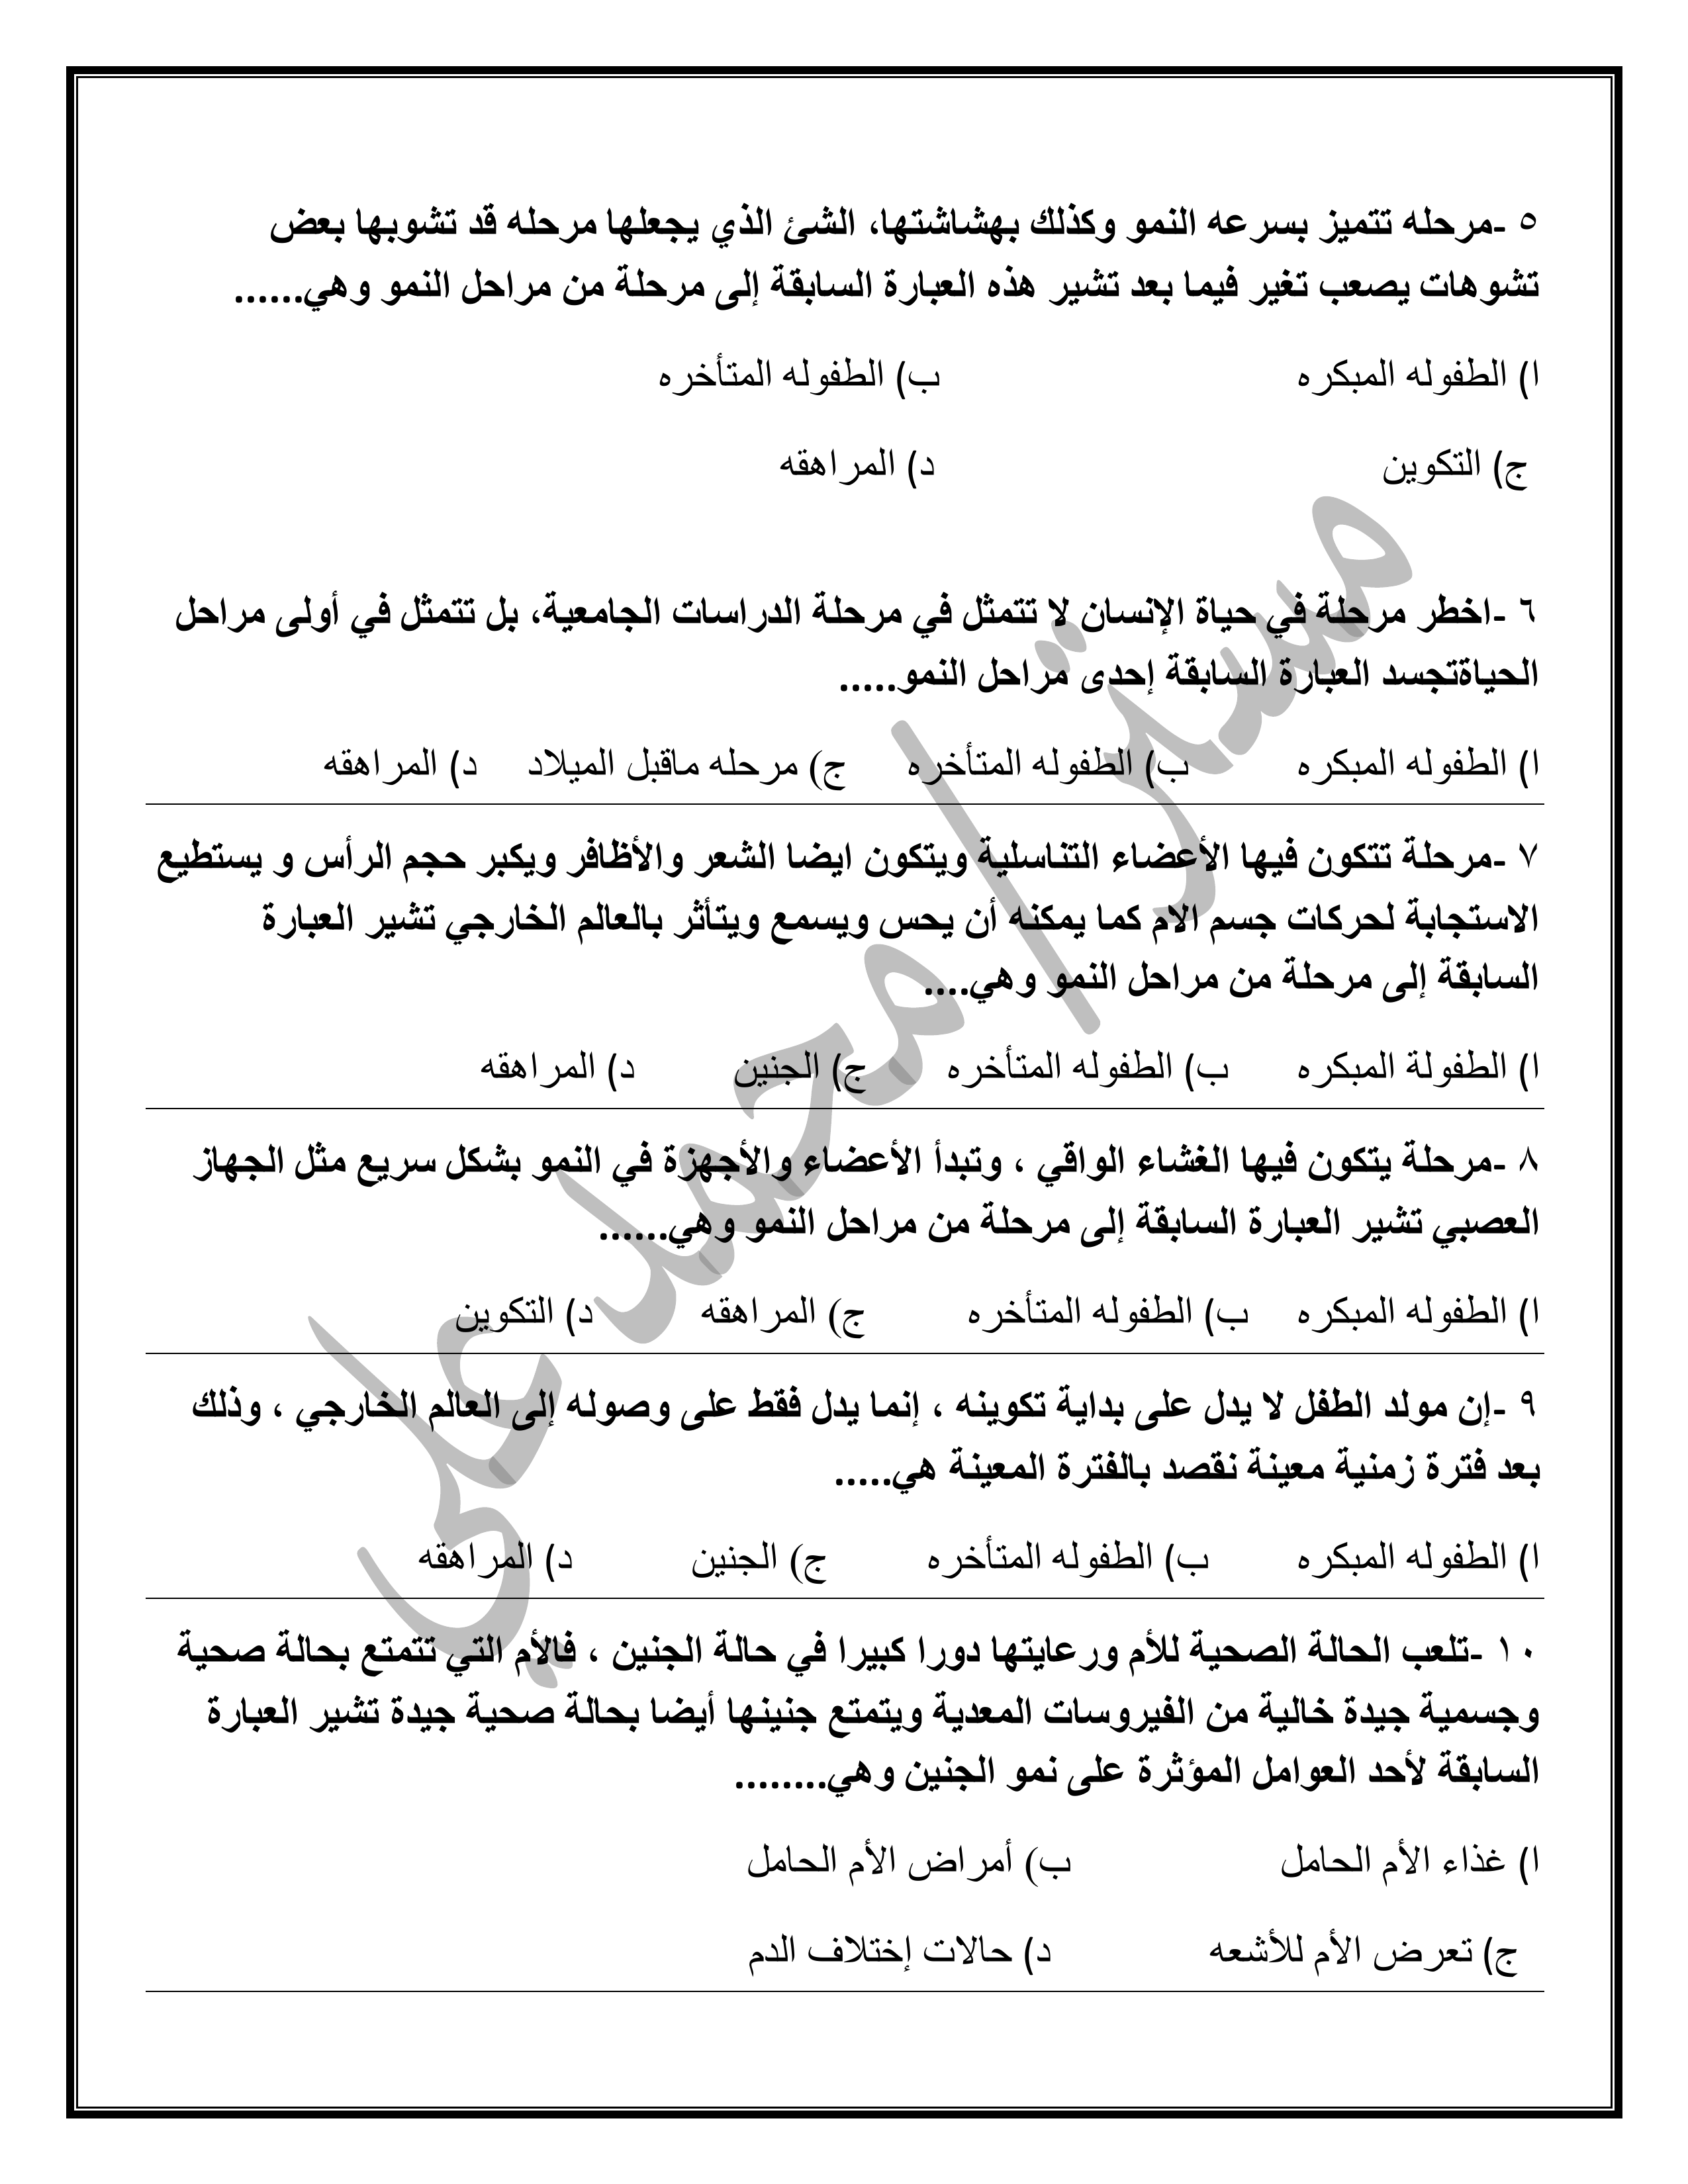 ٥ -مرحله تتميز بسرعه النمو وكذلك بهشاشتها، الشئ الذي يجعلها مرحله قد تشوبها بعض
تشوهات يصعب تغير فيما بعد تشير هذه العبارة السابقة إلى مرحلة من مراحل النمو وهي......
ا) الطفوله المبكره ب) الطفوله المتأخره
ج) التكوين د) المراهقه
٦ -اخطر مرحلة في حياة الإنسان لا تتمثل في مرحلة الدراسات الجامعية، بل تتمثل في أولى مراحل
الحياةتجسد العبارة السابقة إحدى مراحل النمو.....
ا) الطفوله المبكره ب) الطفوله المتأخره ج) مرحله ماقبل الميلاد د) المراهقه
٧ -مرحلة تتكون فيها الأعضاء التناسلية ويتكون ايضا الشعر والأظافر ويكبر حجم الرأس و يستطيع
الاستجابة لحركات جسم الام كما يمكنه أن يحس ويسمع ويتأثر بالعالم الخارجي تشير العبارة
السابقة إلى مرحلة من مراحل النمو وهي....
ا) الطفولة المبكره ب) الطفوله المتأخره ج) الجنين د) المراهقه
٨ -مرحلة يتكون فيها الغشاء الواقي ، وتبدأ الأعضاء والأجهزة في النمو بشكل سريع مثل الجهاز
العصبي تشير العبارة السابقة إلى مرحلة من مراحل النمو وهي......
ا) الطفوله المبكره ب) الطفوله المتأخره ج) المراهقه د) التكوين
٩ -إن مولد الطفل لا يدل على بداية تكوينه ، إنما يدل فقط على وصوله إلى العالم الخارجي ، وذلك
بعد فترة زمنية معينة نقصد بالفترة المعينة هي.....
ا) الطفوله المبكره ب) الطفوله المتأخره ج) الجنين د) المراهقه
١٠ -تلعب الحالة الصحية للأم ورعايتها دورا كبيرا في حالة الجنين ، فالأم التي تتمتع بحالة صحية
وجسمية جيدة خالية من الفيروسات المعدية ويتمتع جنينها أيضا بحالة صحية جيدة تشير العبارة
السابقة لأحد العوامل المؤثرة على نمو الجنين وهي........
ا) غذاء الأم الحامل ب) أمراض الأم الحامل
ج) تعرض الأم للأشعه د) حالات إختلاف الدم
مستر/محمد علي